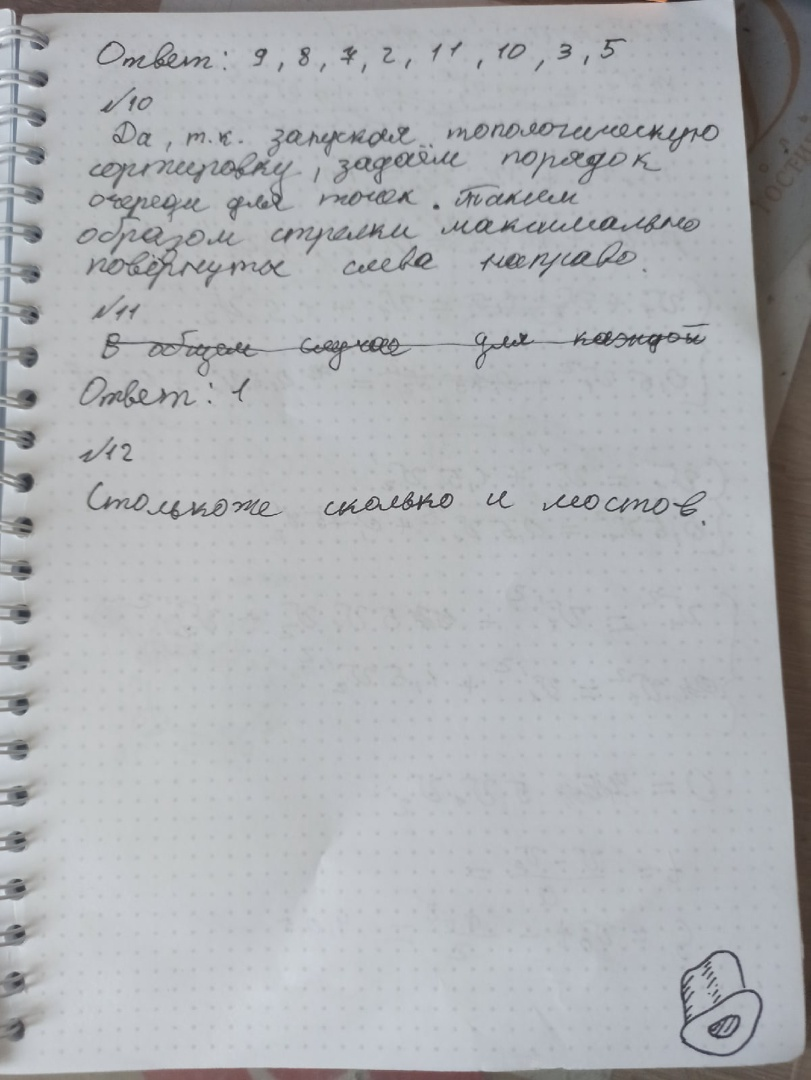 Ответ: 9, 8, 7, 2, 11, 10, 3, 5
№10
Да, т.к. запуская топологическую
сортировку, задаём порядок
очереди для точек. Таким
образом стрелки максимально
повёрнуты слева направо.
№11
В общем случае для каждой
Ответ: 1
№12
Столькоже сколько и мостов.